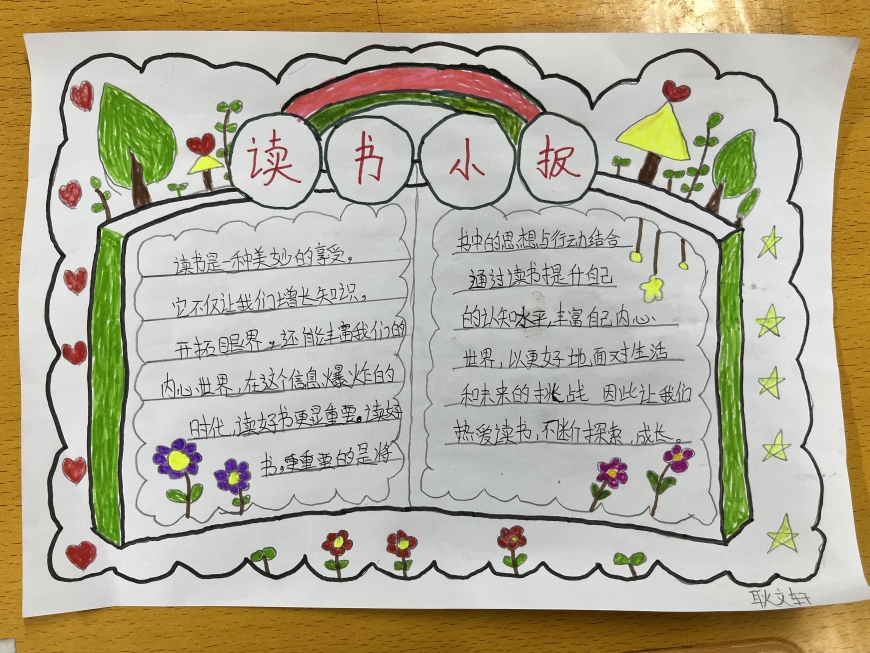 读书小报
读书是一种美妙的享受。
它不仅让我们增长知识。
开拓眼界，还能丰富我们的
内心世界，在这个信息爆炸的
时代，读好书更显重要。读好
书，重要的是将
书中的思想与行动结合
通过读书提升自己
的认知水平，丰富自己内心
世界，以更好地面对生活
和未来的挑战 因此让我们
热爱读书，不断探索，成长。
耿文轩